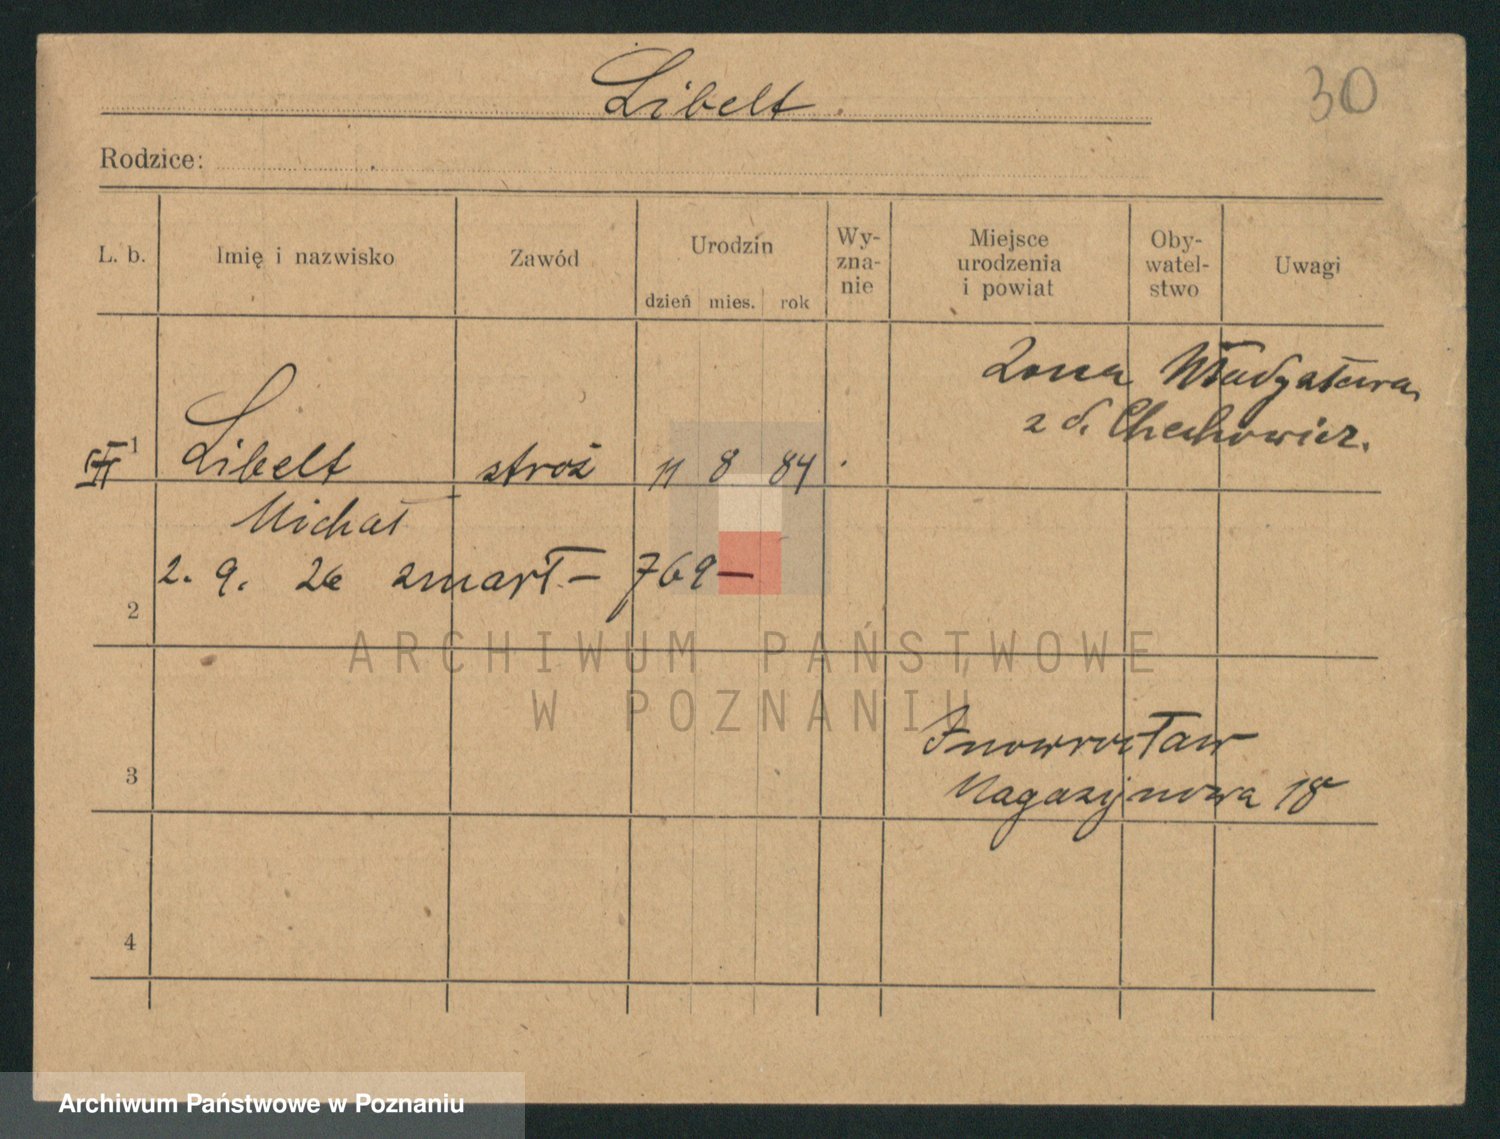 Libelt.
30
Rodzice:
L. b.
Imię i nazwisko
Zawód
Urodzin
dzień mies. rok
Wy-
zna-
nie
Miejsce
urodzenia
i powiat
Oby-
watel-
stwo
Uwagi
Żona Władysława
z d. Chechowicz.
1
III Libelt stróż 11 8 84
Michał
2. 9. 26 zmarł – 769 –
2
ARCHIWUM PAŃSTWOWE
W POZNANIU
3
Inowrocław
Magazynowa 18
4
Archiwum Państwowe w Poznaniu